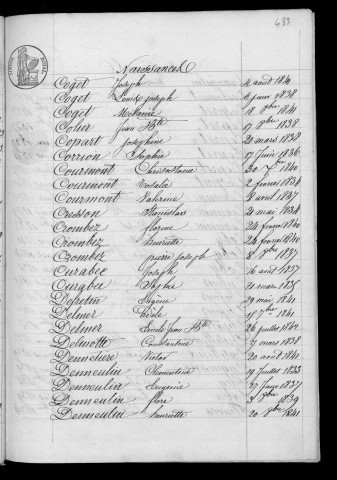 483
Naissances
Coget Joseph 4 août 1841
Coget Louis Joseph 6 janv 1838
Coget 18 8bre 1841
Colier Jean Bte 17 8bre 1838
Copart Josephine 20 mars 1838
Correon Sophie 17 Juin 1836
Courmont Chrisostome 30 1840
Courmont Rosalie 2 fevrier 1834
Courmont Valerine 8 avril 1837
Cresson Stanislas 20 mai 1834
Crombez florine 24 fevrier 1840
Crombez henriette 24 fevrier 1840
Crombez pierre joseph 8 1837
Curabec Joseph 16 août 1837
Curabec 21 mars 1835
Defretin 29 mai 1841
Delmer Cécile 1841
Delmer Emile Jean Bte 26 juillet 1842
Delmotte Constantine 7 mars 1838
Demetière Victor 20 août 1841
Demeulin Clementine 19 Juillet 1833
Demeulin Eugenie 27 Janv 1837
Demeulin flore 8bre 1839
Demeulin henriette 20 1841